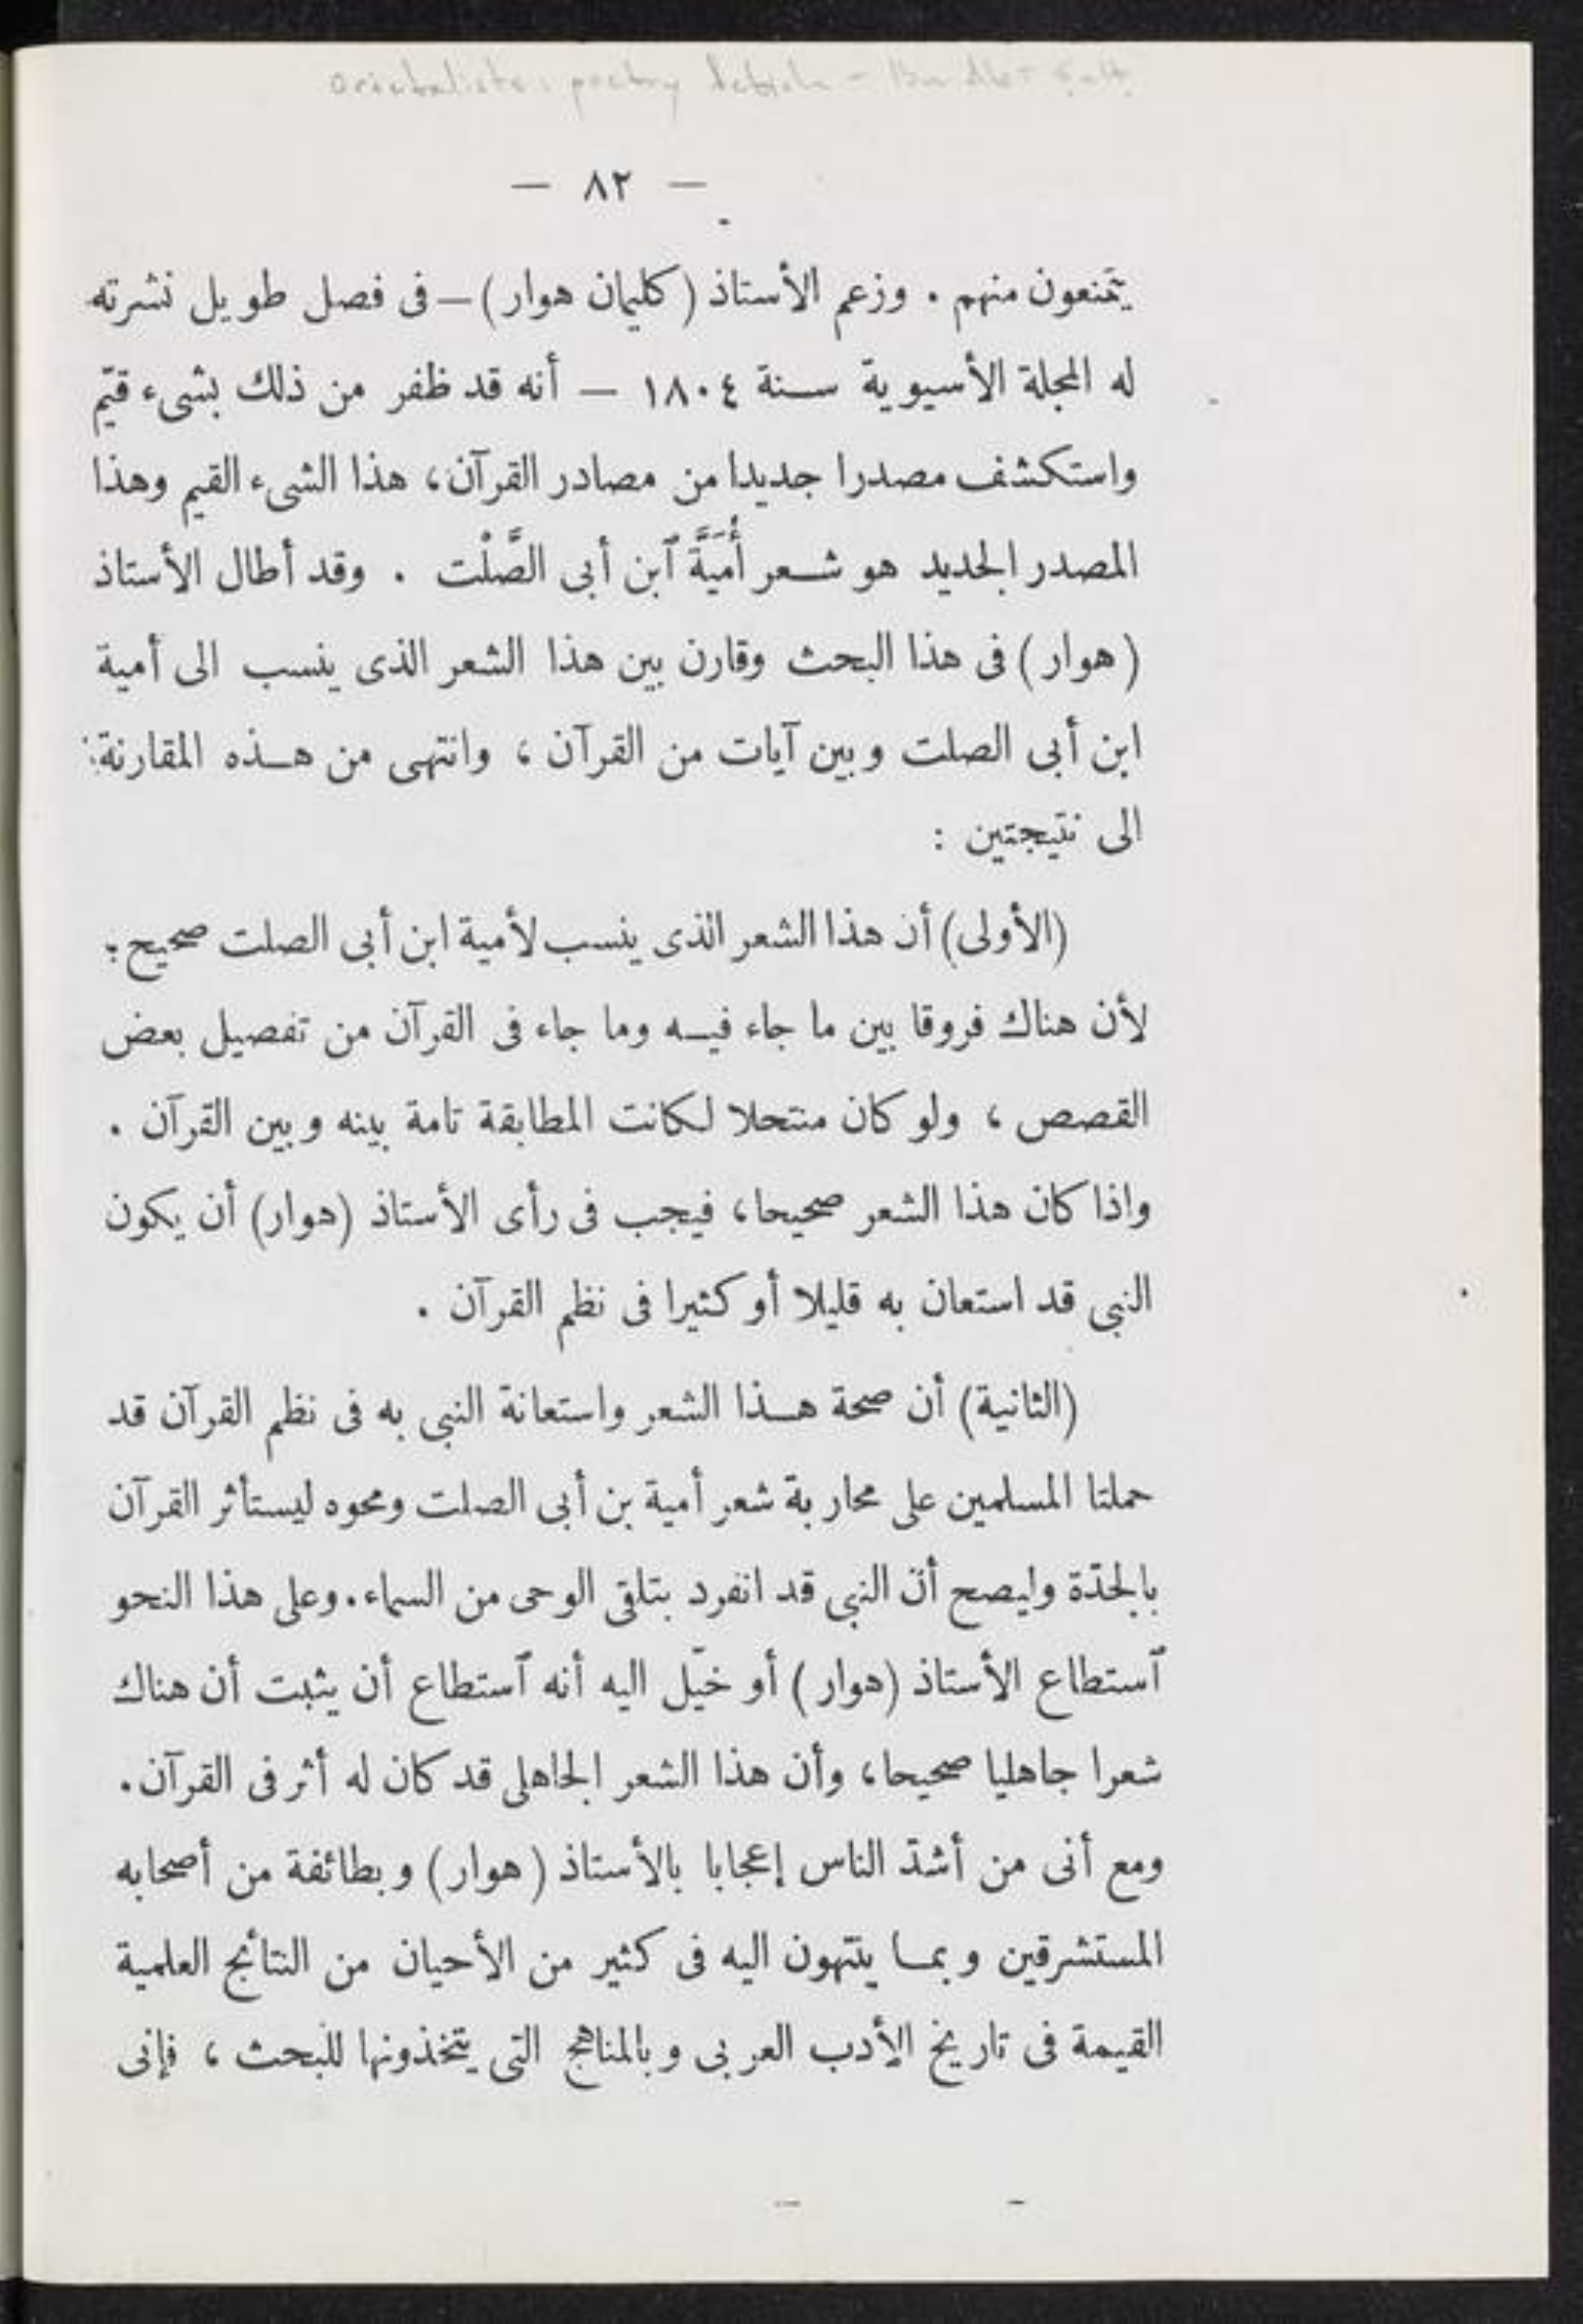 orientalists: poetry
— ٨٢ —
يمتنعون منهم . وزعم الأستاذ (كليمان هوار) — فى فصل طويل نشرته
له المجلة الأسيوية سنة ١٨٠٤ — أنه قد ظفر من ذلك بشىء قيّم
واستكشف مصدرا جديدا من مصادر القرآن، هذا الشىء القيم وهذا
المصدر الجديد هو شعر أُمَيَّة ٱبن أبى الصَّلْت . وقد أطال الأستاذ
(هوار) فى هذا البحث وقارن بين هذا الشعر الذى ينسب الى أمية
ابن أبى الصلت وبين آيات من القرآن، وانتهى من هذه المقارنة
الى نتيجتين :
(الأولى) أن هذا الشعر الذى ينسب لأمية ابن أبى الصلت صحيح؛
لأن هناك فروقا بين ما جاء فيه وما جاء فى القرآن من تفصيل بعض
القصص، ولو كان منتحلا لكانت المطابقة تامة بينه وبين القرآن .
واذا كان هذا الشعر صحيحا، فيجب فى رأى الأستاذ (هوار) أن يكون
النبى قد استعان به قليلا أو كثيرا فى نظم القرآن .
(الثانية) أن صحة هذا الشعر واستعانة النبى به فى نظم القرآن قد
حملتا المسلمين على محاربة شعر أمية بن أبى الصلت ومحوه ليستأثر القرآن
بالجدّة وليصح أنّ النبى قد انفرد بتلقى الوحى من السماء. وعلى هذا النحو
ٱستطاع الأستاذ (هوار) أو خيّل اليه أنه ٱستطاع أن يثبت أن هناك
شعرا جاهليا صحيحا، وأن هذا الشعر الجاهلى قد كان له أثر فى القرآن.
ومع أنى من أشدّ الناس إعجابا بالأستاذ (هوار) وبطائفة من أصحابه
المستشرقين وبما ينتهون اليه فى كثير من الأحيان من النتائج العلمية
القيمة فى تاريخ الأدب العربى وبالمناهج التى يتخذونها للبحث، فإنى